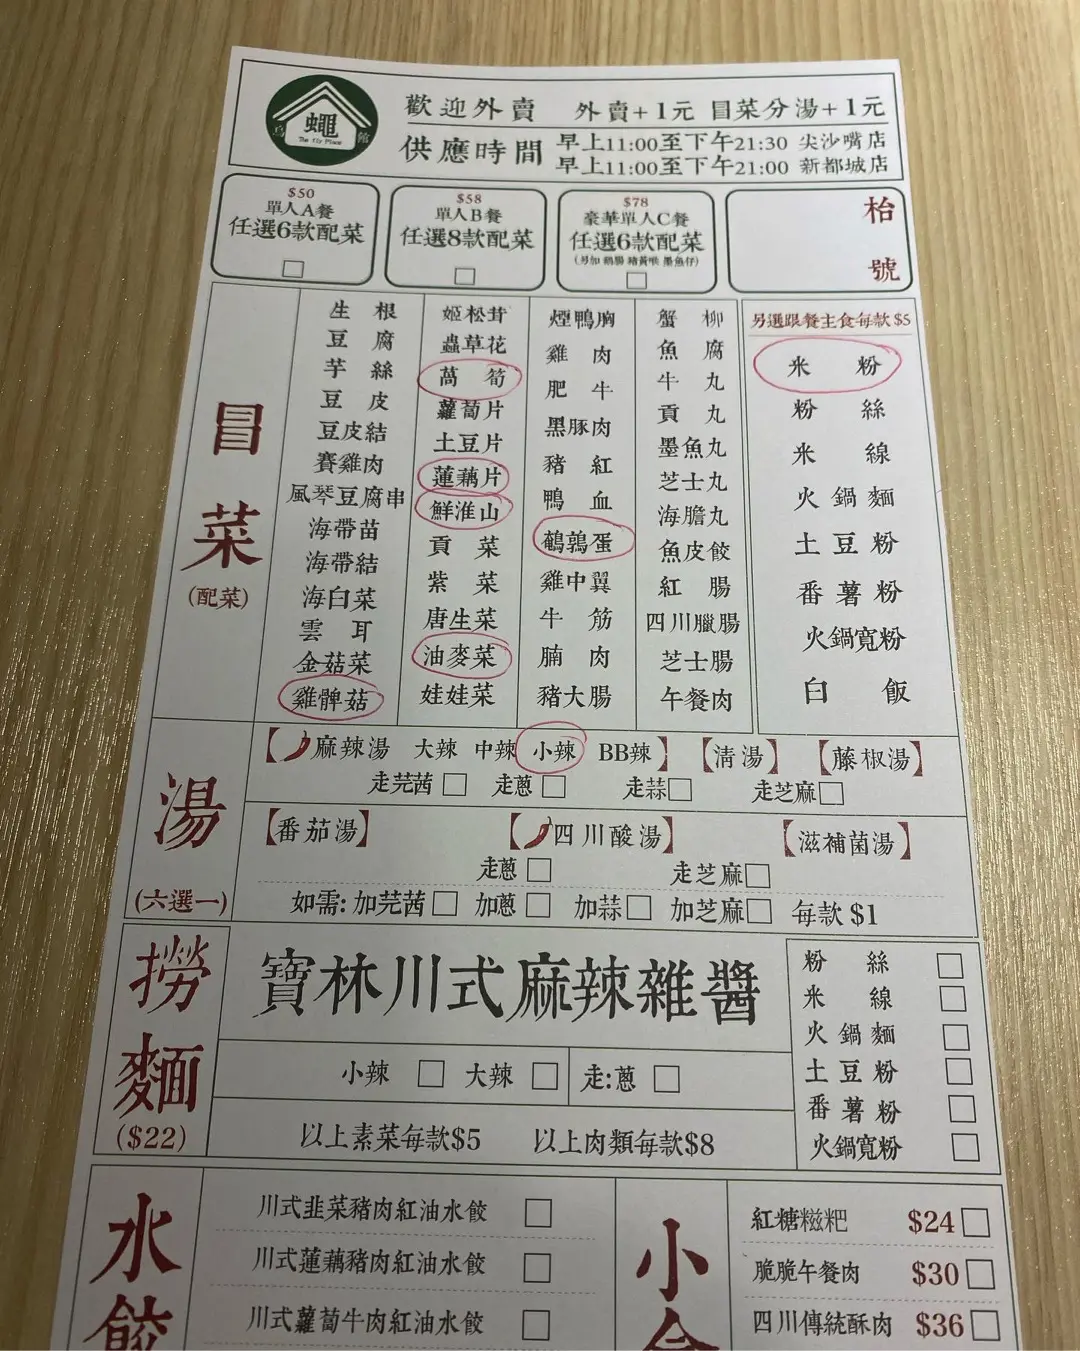 烏 蠅 館
The Fly Place
歡迎外賣 外賣+1元 冒菜分湯+1元
供應時間 早上11:00至下午21:30 尖沙嘴店
早上11:00至下午21:00 新都城店
$50
單人A餐
任選6款配菜
$58
單人B餐
任選8款配菜
$78
豪華單人C餐
任選6款配菜
(另加 鵝腸 豬黃喉 墨魚仔)
枱
號
冒
菜
(配菜)
生根
豆腐
芋絲
豆皮
豆皮結
賽雞肉
風琴豆腐串
海帶苗
海帶結
海白菜
雲耳
金菇菜
雞髀菇
姬松茸
蟲草花
萵筍
蘿蔔片
土豆片
蓮藕片
鮮淮山
貢菜
紫菜
唐生菜
油麥菜
娃娃菜
煙鴨胸
雞肉
肥牛
黑豚肉
豬紅
鴨血
鵪鶉蛋
雞中翼
牛筋
腩肉
豬大腸
蟹柳
魚腐
牛丸
貢丸
墨魚丸
芝士丸
海膽丸
魚皮餃
紅腸
四川臘腸
芝士腸
午餐肉
另選跟餐主食每款$5
米粉
粉絲
米線
火鍋麵
土豆粉
番薯粉
火鍋寬粉
白飯
湯
(六選一)
【麻辣湯 大辣 中辣 小辣 BB辣】【清湯】【藤椒湯】
走芫茜 走蔥 走蒜 走芝麻
【番茄湯】【四川酸湯】【滋補菌湯】
走蔥 走芝麻
如需:加芫茜 加蔥 加蒜 加芝麻 每款 $1
撈
麵
($22)
寶林川式麻辣雜醬
小辣 大辣 走:蔥
以上素菜每款$5 以上肉類每款$8
粉絲
米線
火鍋麵
土豆粉
番薯粉
火鍋寬粉
水
餃
川式韭菜豬肉紅油水餃
川式蓮藕豬肉紅油水餃
川式蘿蔔牛肉紅油水餃
小
紅糖糍粑 $24
脆脆午餐肉 $30
四川傳統酥肉 $36